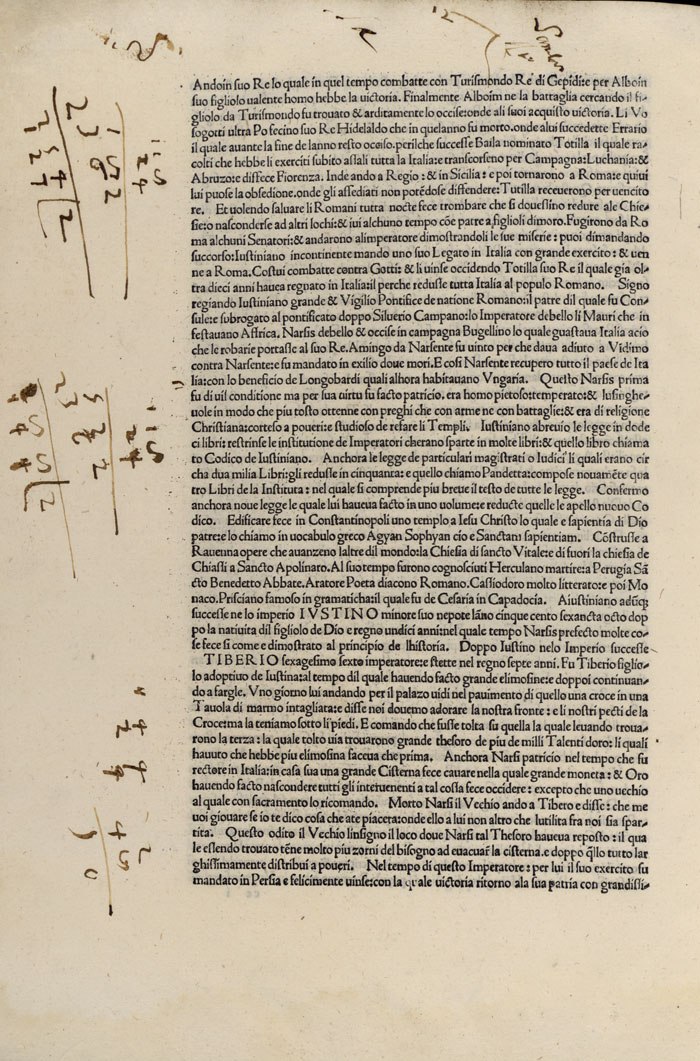 Andoin suo Re lo quale in quel tempo combatte con Turismondo Re di Gepidi:e per Alboin
suo figliolo ualente homo hebbe la uictoria. Finalmente Alboim ne la battaglia cercando il fi-
gliolo da Turismondo fu trouato & arditamente lo occise:onde ali suoi acquisto uictoria. Li Vo
sogotti ultra Po fecino suo Re Hidelaldo che in quelanno fu morto.onde alui succedette Errario
il quale auante la fine de lanno resto occiso.perilche successe Baila nominato Totilla il quale ra-
colti che hebbe li exerciti subito aslali tutta la Italia:e transcorseno per Campagna:Luchania:&
Abruzo:e disfece Fiorenza. Inde ando a Regio:& in Sicilia:e poi tornarono a Roma:e quiui
lui puose la obsedione.onde gli assediati non potēdose diffendere:Tutilla receuerono per uencito
re. Et uolendo saluare li Romani tutta nocte fece trombare che si douessino redure ale Chie-
sie:o nasconderse ad altri lochi:& iui alchuno tempo cōe patre a figlioli dimoro.Fugirono da Ro
ma alchuni Senatori:& andarono alimperatore dimostrandoli le sue miserie: puoi dimandando
succorso:Iustiniano incontinente mando uno suo Legato in Italia con grande exercito:& uen
ne a Roma. Costui combatte contra Gotti:& li uinse occidendo Totilla suo Re il quale gia ol-
tra dieci anni hauea regnato in Italia:il perche redusse tutta Italia al populo Romano. Signo
regiando Iustiniano grande & Vigilio Pontifice de natione Romano:il patre dil quale fu Con-
sule:e subrogato al pontificato doppo Siluerio Campano:lo Imperatore debello li Mauri che in
festauano Affrica. Narsis debello & occise in campagna Bugellino lo quale guastaua Italia acio
che le robarie portasse al suo Re.Amingo da Narsente fu uinto per che daua adiuto a Vidimo
contra Narsente:e fu mandato in exilio doue mori.E cosi Narsente recupero tutto il paese de Ita
lia:con lo beneficio de Longobardi quali alhora habitauano Vngaria. Questo Narsis prima
fu di uil conditione ma per sua uirtu fu facto patricio. era homo pietoso:temperato:& lusinghe-
uole in modo che piu tosto ottenne con preghi che con arme ne con battaglie:& era di religione
Christiana:corteso a poueri:e studioso de refare li Templi. Iustiniano abreuio le legge in dode
ci libri:restrinse le institutione de Imperatori cherano sparte in molte libri:& quello libro chiama
to Codico de Iustiniano. Anchora le legge de particulari magistrati o Iudici li quali erano cir
cha dua milia Libri:gli redusse in cinquanta:e quello chiamo Pandetta:compose nouamēte qua
tro Libri de la Instituta: nel quale si comprende piu breue il testo de tutte le legge. Confermo
anchora noue legge le quale lui haueua facto in uno uolume:e reducte quelle le apello nuouo Co
dico. Edificare fece in Constantinopoli uno templo a Iesu Christo lo quale e sapientia di Dio
patre:e lo chiamo in uocabulo greco Agyan Sophyan cio e Sanctam sapientiam. Cōstrusse a
Rauenna opere che auanzeno laltre dil mondo:la Chiesia di sancto Vitale:e di fuori la chiesia de
Chiassi a Sancto Apolinato.Al suo tempo furono cognosciuti Herculano martire:a Perugia Sā
cto Benedetto Abbate.Aratore Poeta diacono Romano.Cassiodoro molto litterato:e poi Mo
naco.Prisciano famoso in gramaticha:il quale fu de Cesaria in Capadocia. Aiustiniano adūq;
successe ne lo imperio IVSTINO minore suo nepote lāno cinque cento sexancta octo dop
po la natiuita dil figliolo de Dio e regno undici anni:nel quale tempo Narsis prefecto molte co-
se fece si come e dimostrato al principio de lhistoria. Doppo Iustino nelo Imperio successe
TIBERIO sexagesimo sexto imperatore:stette nel regno septe anni. Fu Tiberio figlio-
lo adoptiuo de Iustina:al tempo dil quale hauendo facto grande elimosine:e doppoi continuan-
do a fargle. Vno giorno lui andando per il palazo uidi nel pauimento di quello una croce in una
Tauola di marmo intagliata:e disse noi douemo adorare la nostra fronte:e li nostri pecti de la
Croce:ma la teniamo sotto li piedi. E comando che fusse tolta su quella la quale leuando troua-
rono la terza: la quale tolto uia trouarono grande thesoro de piu de milli Talenti doro: li quali
hauuto che hebbe piu elimosina faceua che prima. Anchora Narsi patricio nel tempo che fu
rectore in Italia:in casa sua una grande Cisterna fece cauare nella quale grande moneta: & Oro
hauendo facto nascondere tutti gli interuenenti a tal cosa fece occidere: excepto che uno uechio
al quale con sacramento lo ricomando. Morto Narsi il Vechio ando a Tibero e disse: che me
uoi giouare se io te dico cosa che ate piaceta:onde ello a lui non altro che lutilita fra noi sia spar-
tita. Questo odito il Vechio linsigno il loco doue Narsi tal Thesoro haueua reposto: il qua
le essendo trouato tēne molto piu zorni del bisogno ad euacuar la cisterna.e doppo q̄llo tutto lar
ghissimamente distribui a poueri. Nel tempo di questo Imperatore: per lui il suo exercito fu
mandato in Persia e felicimente uinse:con la quale uictoria ritorno ala sua patria con grandissi-